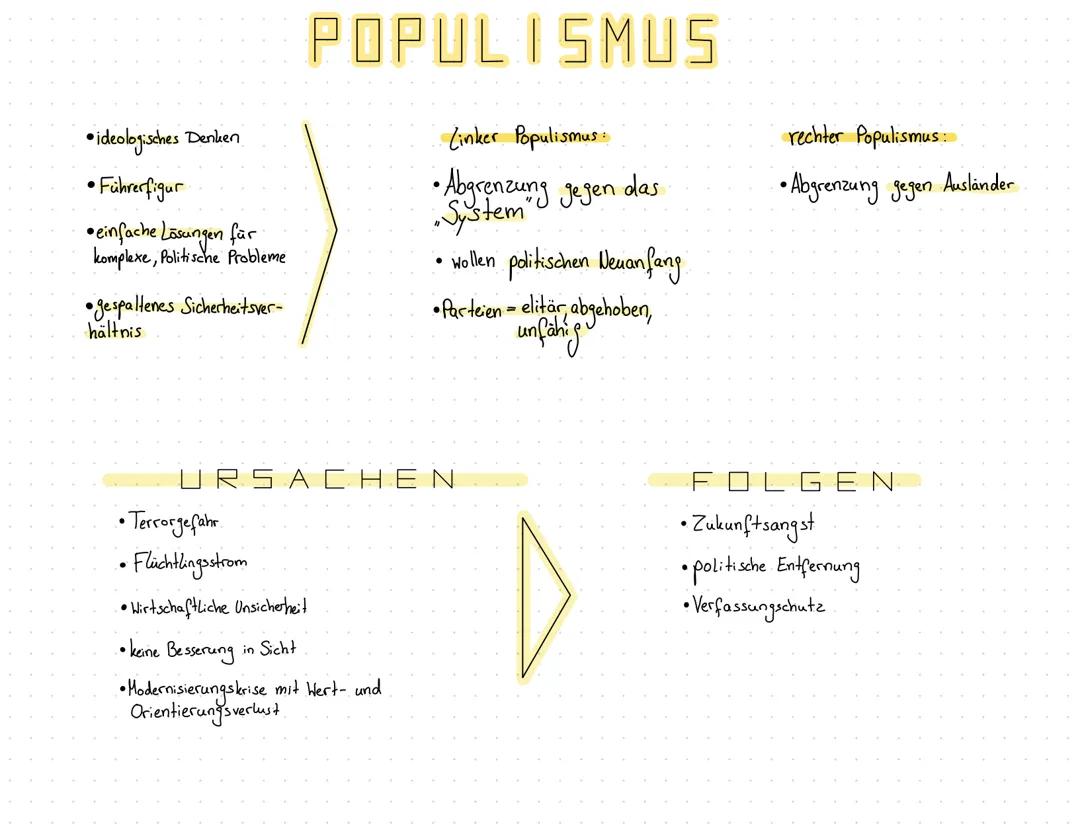 POPULISMUS
• ideologisches Denken
• Führerfigur
• einfache Lösungen für
komplexe, Politische Probleme
• gespaltenes Sicherheitsver-
hältnis
Linker Populismus:
• Abgrenzung gegen das
„System"
• wollen politischen Neuanfang
• Parteien = elitär, abgehoben,
unfähig
rechter Populismus:
• Abgrenzung gegen Ausländer
URSACHEN
• Terrorgefahr
• Flüchtlingsstrom
• Wirtschaftliche Unsicherheit
• keine Besserung in Sicht
• Modernisierungskrise mit Wert- und
Orientierungsverlust
FOLGEN
• Zukunftsangst
• politische Entfernung
• Verfassungschutz